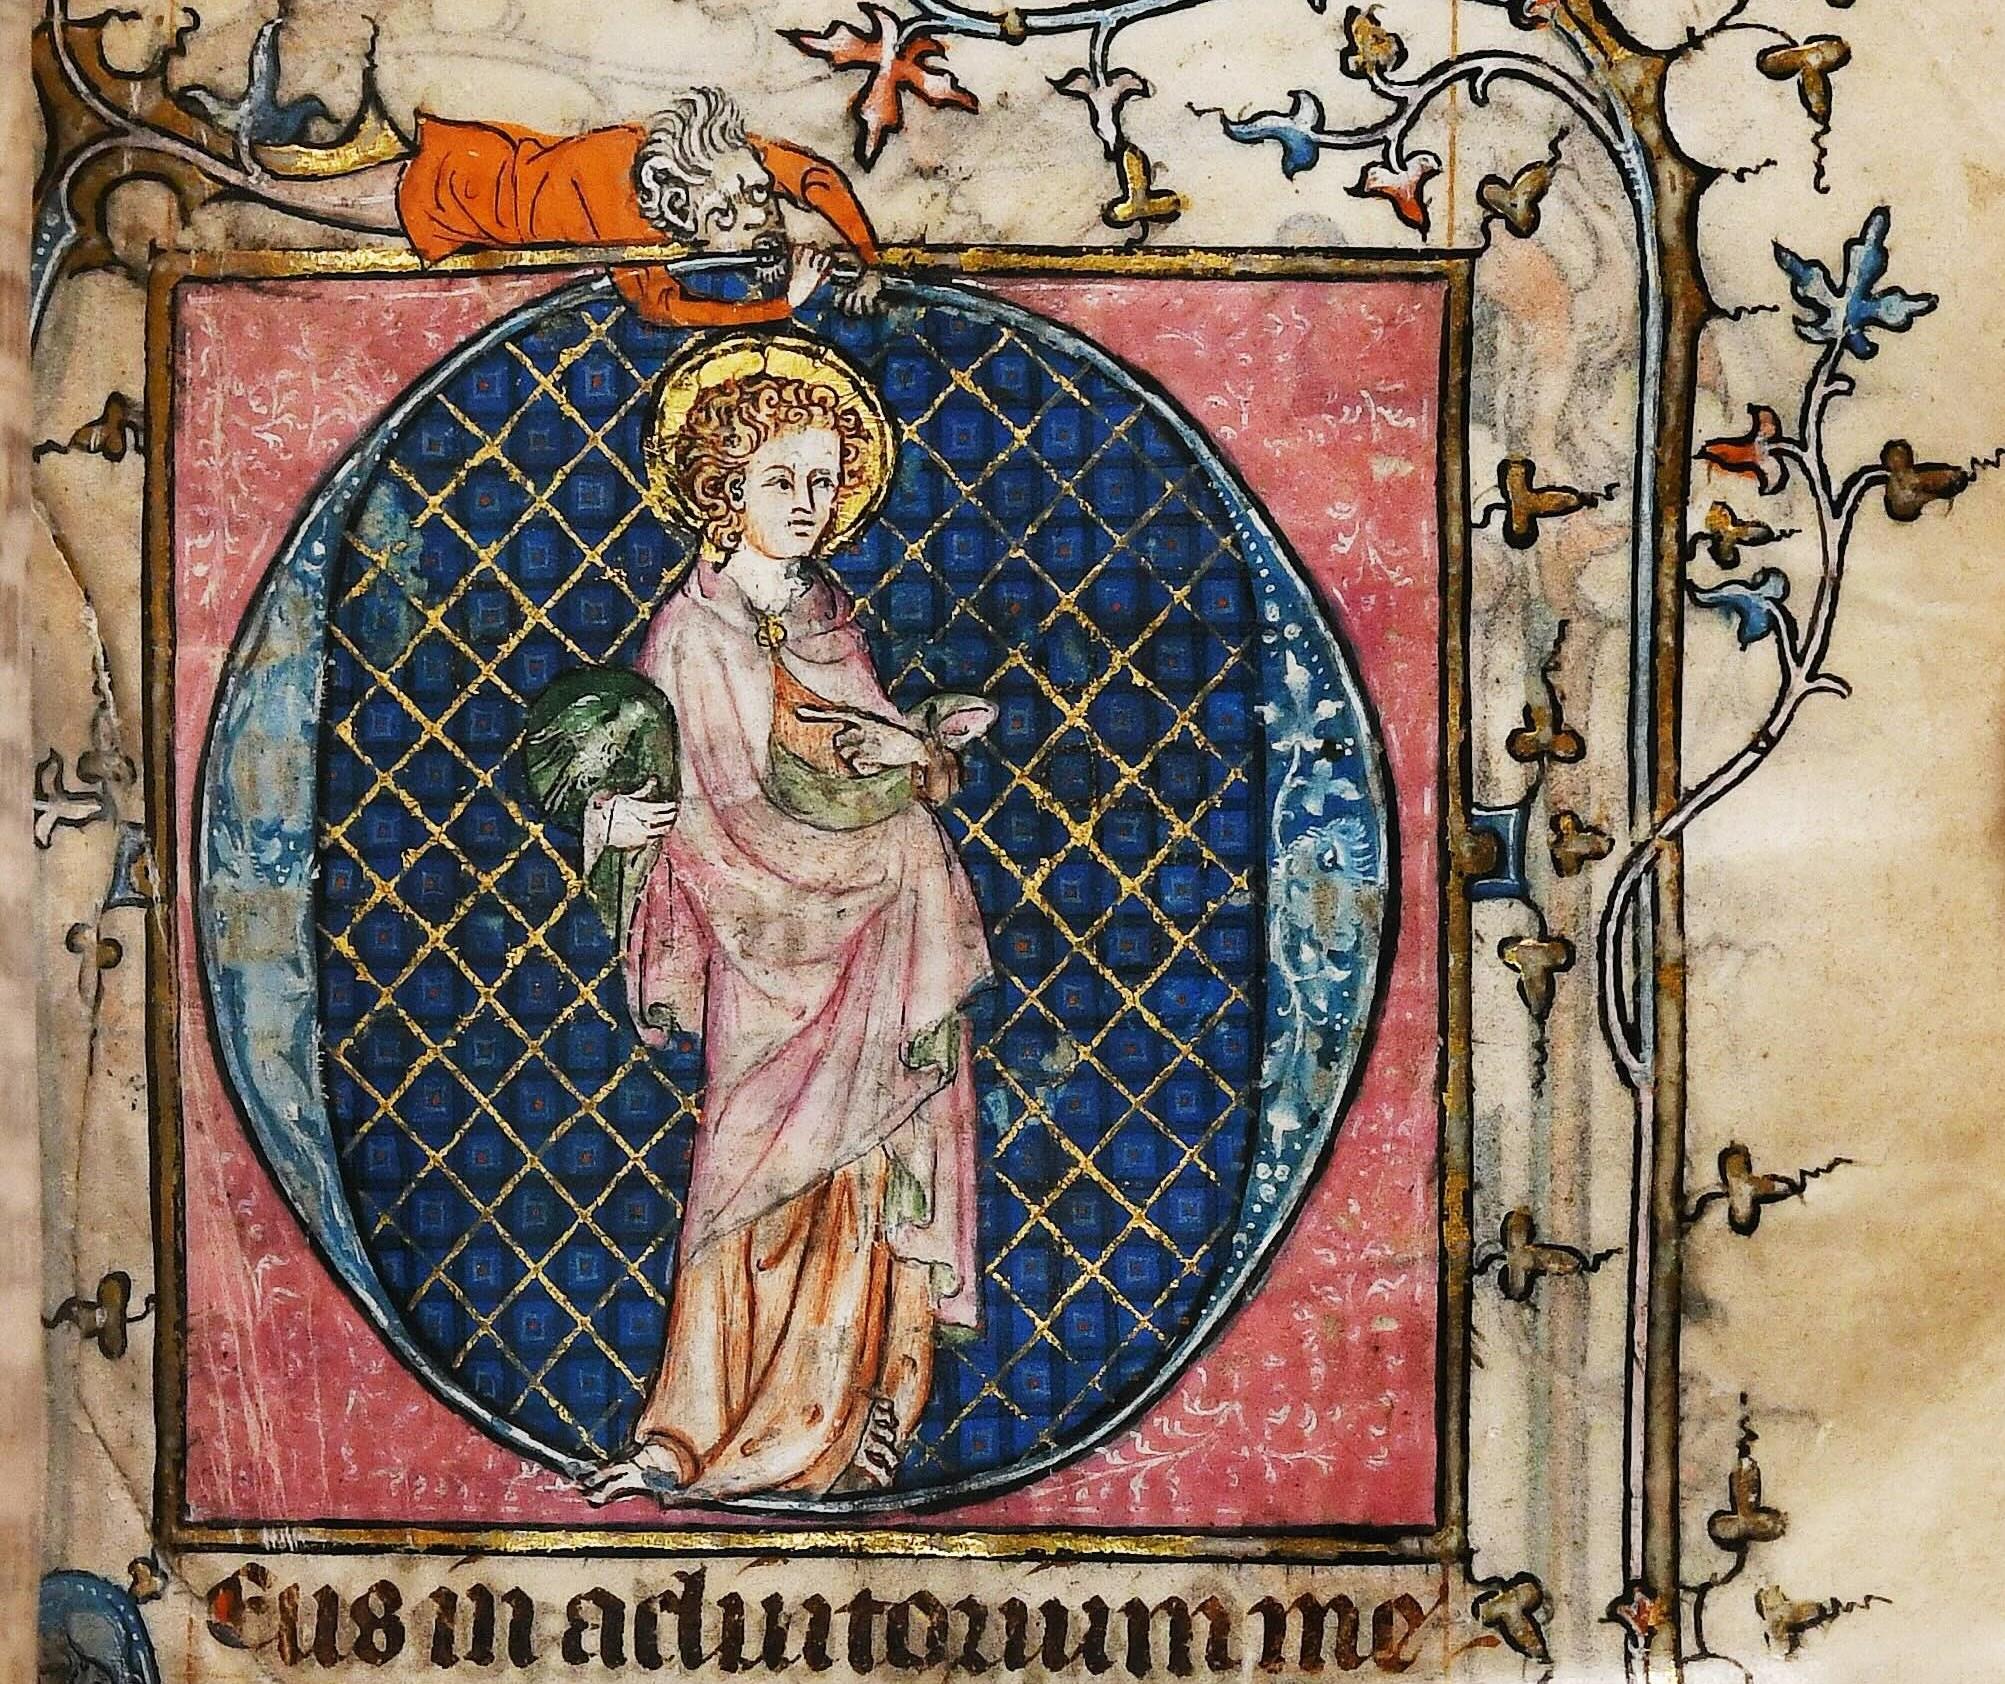 D
Eus in adiutorium me